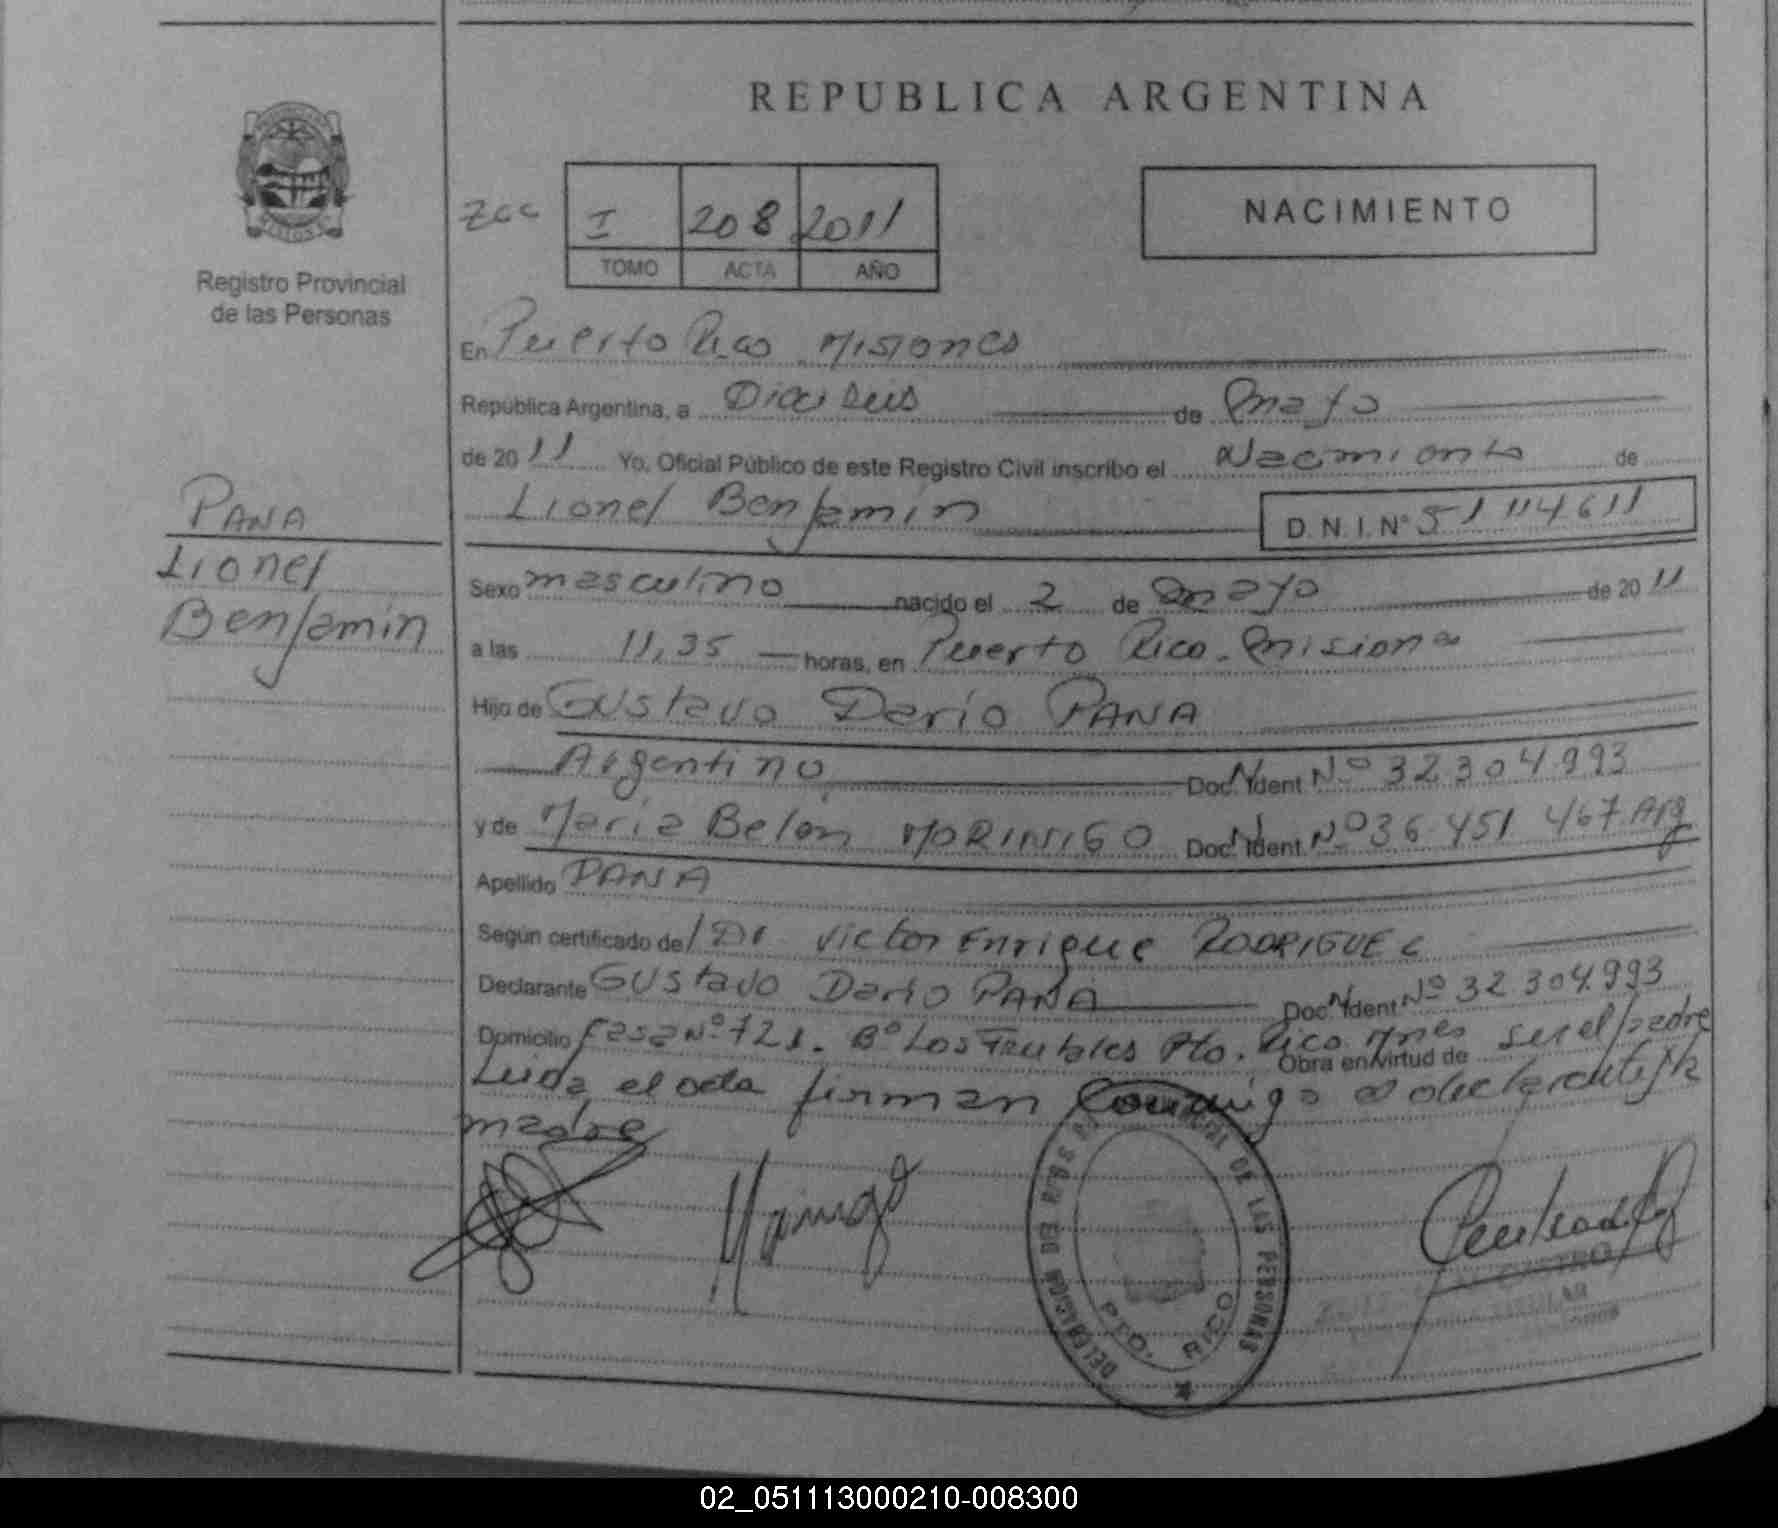 REPUBLICA ARGENTINA
Registro Provincial
de las Personas
I 208 2011
TOMO ACTA AÑO
NACIMIENTO
En Puerto Rico Misiones
República Argentina, a Dieciseis de mayo
de 2011 Yo, Oficial Público de este Registro Civil inscribo el Nacimiento de
Lionel Benjamín D.N.I.Nº 51 114611
PANA
Lionel
Benjamín
Sexo masculino nacido el 2 de mayo de 2011
a las 11,35 horas, en Puerto Rico. Misiones
Hijo de Gustavo Darío PANA
Argentino Doc. Ident. Nº 32.304.993
y de María Belén MORINIGO Doc. Ident. Nº 36.451.467 Arg
Apellido PANA
Según certificado del Dr. Victor Enrique RODRIGUEZ
Declarante Gustavo Darío PANA Doc. Ident. Nº 32.304.993
Domicilio Casa Nº 721. Bº Los Pto. Rico Mnes Obra en virtud de ser el padre
Leida el acta firman conmigo el declarante y la
madre
DELEGACION DE LAS PERSONAS
PTO. RICO
CASTRO
TITULAR
02_051113000210-008300